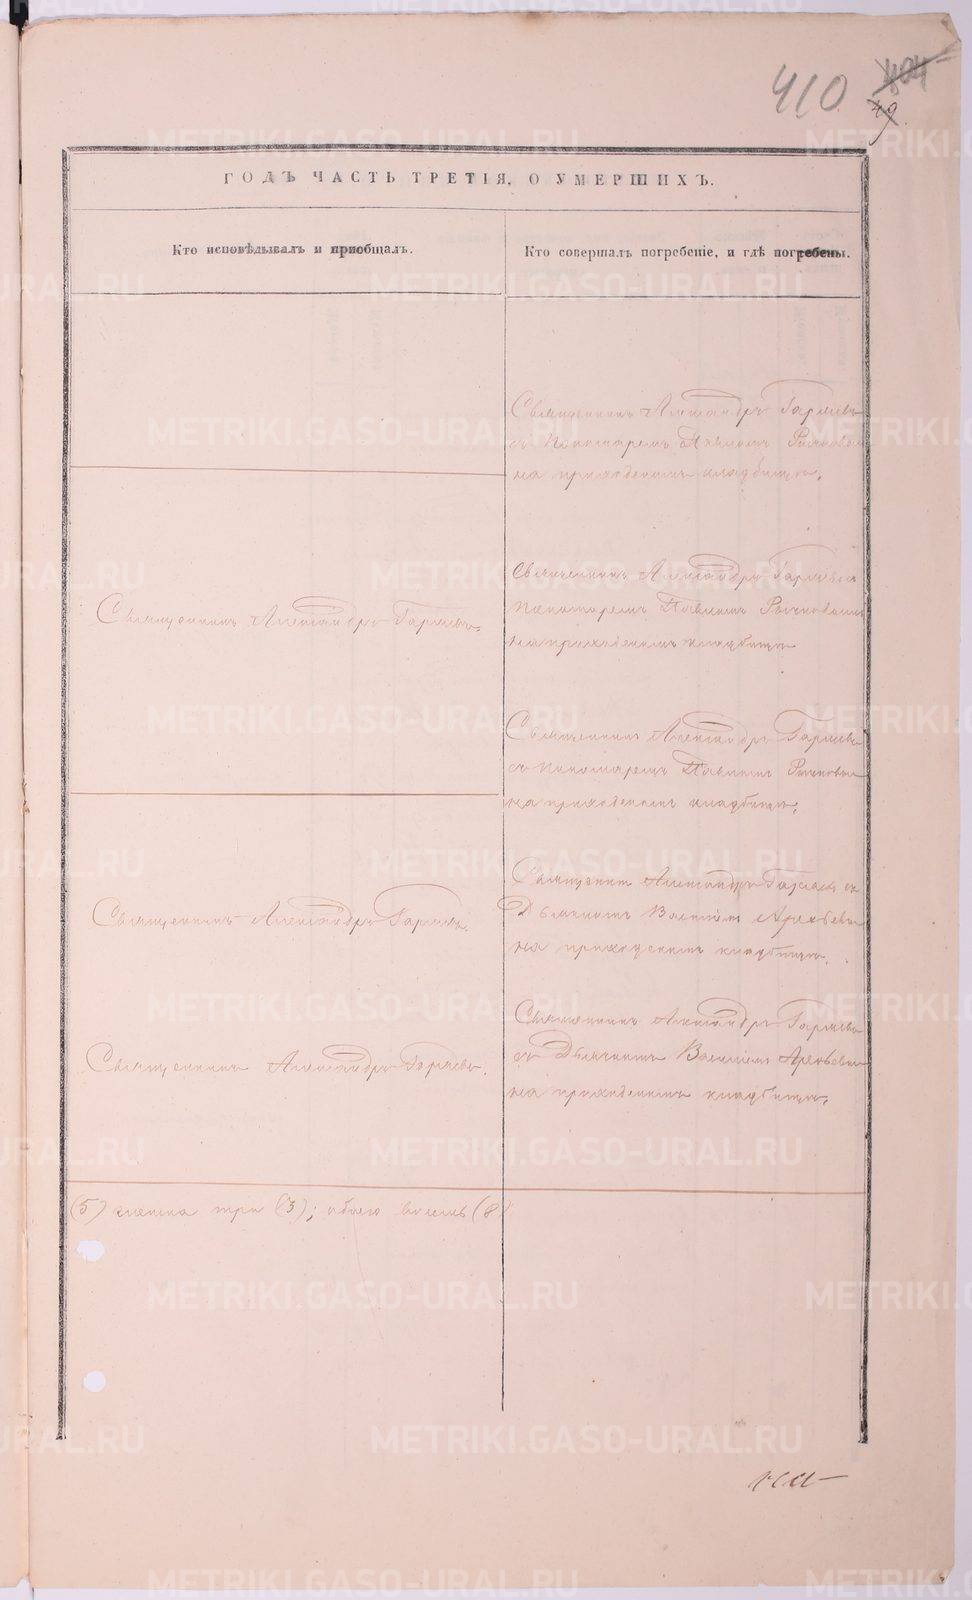 410
404
49
ГОДЪ ЧАСТЬ ТРЕТІЯ, О УМЕРШИХЪ.
Кто исповѣдывалъ и приобщалъ.
Кто совершалъ погребеніе, и гдѣ погребены.
Священникъ Александръ Гаряевъ
съ Пономаремъ Павломъ
на приходскомъ кладбищѣ.
Священникъ Александръ Гаряевъ.
Священникъ Александръ Гаряевъ съ
Пономаремъ Павломъ
на приходскомъ кладбищѣ
Священникъ Александръ Гаряевъ
съ Пономаремъ Павломъ
на приходскомъ кладбищѣ.
Священникъ Александръ Гаряевъ.
Священникъ Александръ Гаряевъ съ
Дьячкомъ Василіемъ Арефьевымъ
на приходскомъ кладбищѣ.
Священникъ Александръ Гаряевъ.
Священникъ Александръ Гаряевъ
съ Дьячкомъ Василіемъ Арефьевымъ
на приходскомъ кладбищѣ.
(5) женска три (3); обоего восемь (8)
METRIKI.GASO-URAL.RU